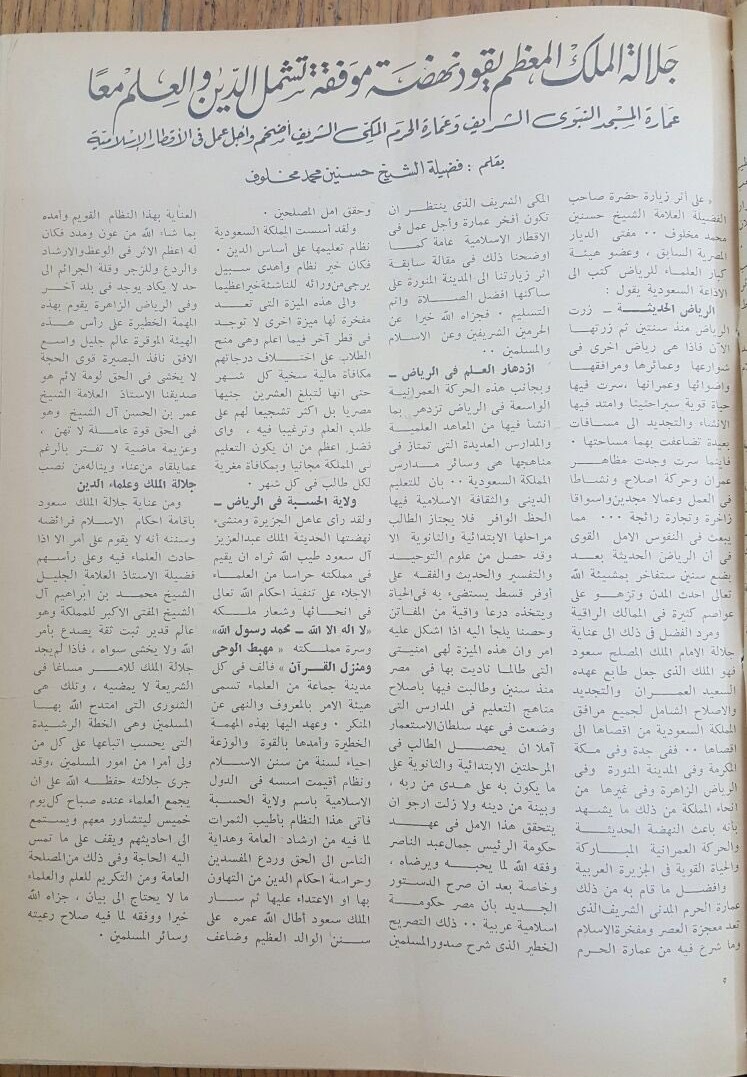 جلالة الملك المعظم يقود نهضة موفقة تشمل الدين والعلم معًا
عمارة المسجد النبوى الشريف وعمارة الحرم المكى الشريف أضخم واجل عمل فى الأقطار الإسلامية
بقلم : فضيلة الشيخ حسنين محمد مخلوف
على أثر زيارة حضرة صاحب
الفضيلة العلامة الشيخ حسنين
محمد مخلوف ٠٠ مفتى الديار
المصرية السابق ، وعضو هيئة
كبار العلماء للرياض كتب الى
الاذاعة السعودية يقول :
الرياض الحديثة ــ زرت
الرياض منذ سنتين ثم زرتها
الآن فاذا هى رياض اخرى فى
شوارعها وعمائرها ومرافقها
وأضوائها وعمرانها ،سرت فيها
حياة قوية سيراحثيثا وامتد فيها
الانشاء والتجديد الى مسافات
بعيدة تضاعفت بهما مساحتها ٠
فأينما سرت وجدت مظاهر
عمران وحركة اصلاح ونشاطا
فى العمل وعمالا مجدين واسواقا
زاخرة وتجارة رائجة ٠٠٠ مما
يبعث فى النفوس الامل القوى
فى أن الرياض الحديثة بعد
بضع سنين ستفاخر بمشيئة الله
تعالى احدث المدن وتزهو على
عواصم كثيرة فى الممالك الراقية
ومرد الفضل فى ذلك الى عناية
جلالة الامام الملك المصلح سعود
فهو الملك الذى جعل طابع عهده
السعيد العمران والتجديد
والاصلاح الشامل لجميع مرافق
المملكة السعودية من اقصاها الى
اقصاها ٠٠ ففى جدة وفى مكة
المكرمة وفى المدينة المنورة وفى
الرياض الزاهرة وفى غيرها من
انحاء المملكة من ذلك ما يشهد
بأنه باعث النهضة الحديثة
والحركة العمرانية المباركة
والحياة القوية فى الجزيرة العربية
وأفضل ما قام به من ذلك
عمارة الحرم المدنى الشريف الذى
تعد معجزة العصر ومفخرة الاسلام
وما شرع فيه من عمارة الحرم
المكى الشريف الذى ينتظر ان
تكون أفخر عمارة وأجل عمل فى
الاقطار الاسلامية عامة كما
اوضحنا ذلك فى مقالة سابقة
اثر زيارتنا الى المدينة المنورة على
ساكنها افضل الصلاة واتم
التسليم ٠ فجزاه الله خيرا عن
الحرمين الشريفين وعن الاسلام
والمسلمين ٠٠
ازدهار العلم فى الرياض ــ
وبجانب هذه الحركة العمرانية
الواسعة فى الرياض تزدهر بما
انشأ فيها من المعاهد العلمية
والمدارس العديدة التى تمتاز فى
مناهجها هى وسائر مدارس
المملكة السعودية ٠٠ بان للتعليم
الدينى والثقافة الاسلامية فيها
الحظ الوافر فلا يجتاز الطالب
مراحلها الابتدائية والثانوية الا
وقد حصل من علوم التوحيد
والتفسير والحديث والفقه على
أوفر قسط يستضىء به فى الحياة
ويتخذه درعا واقية من المفاتن
وحصنا يلجأ اليه اذا اشكل عليه
امر وان هذه الميزة لهى امنيتى
التى طالما ناديت بها فى مصر
منذ سنين وطالبت فيها باصلاح
مناهج التعليم فى المدارس التى
وضعت فى عهد سلطان الاستعمار
آملا ان يحصل الطالب فى
المرحلتين الابتدائية والثانوية على
ما يكون به على هدى من ربه ،
وبينة من دينه ولا زلت ارجو ان
يتحقق هذا الامل فى عهد
حكومة الرئيس جمال عبد الناصر
وفقه الله لما يحبه ويرضاه ،
وخاصة بعد ان صرح الدستور
الجديد بان مصر حكومة
اسلامية عربية ٠٠ ذلك التصريح
الخطير الذى شرح صدور المسلمين
وحقق امل المصلحين ٠
ولقد أسست المملكة السعودية
نظام تعليمها على أساس الدين ٠
فكان خير نظام وأهدى سبيل
يرجى من ورائه للناشئة خير اعظيما
والى هذه الميزة التى تعد
مفخرة لها ميزة اخرى لا توجد
فى قطر آخر فيما اعلم وهى منح
الطلاب على اختلاف درجاتهم
مكافأة مالية سخية كل شهر
حتى انها لتبلغ العشرين جنيها
مصريا بل اكثر تشجيعا لهم على
طلب العلم وترغيبا فيه ، واى
فضل اعظم من ان يكون التعليم
فى المملكة مجانيا وبمكافأة مغرية
لكل طالب فى كل شهر ٠
ولاية الحسبة فى الرياض ــ
ولقد رأى عاهل الجزيرة ومنشىء
نهضتها الحديثة الملك عبدالعزيز
آل سعود طيب الله ثراه ان يقيم
فى مملكته حراسا من العلماء
الاجلاء على تنفيذ احكام الله تعالى
فى انحائها وشعار ملكه
«لا اله الا الله ــ محمد رسول الله»
وسرة مملكته « مهبط الوحى
ومنزل القرآن » فألف فى كل
مدينة جماعة من العلماء تسمى
هيئة الامر بالمعروف والنهى عن
المنكر ٠ وعهد اليها بهذه المهمة
الخطيرة وأمدها بالقوة والوزعة
احياء لسنة من سنن الاسلام
ونظام أقيمت اسسه فى الدول
الاسلامية باسم ولاية الحسبة
فأتى هذا النظام بأطيب الثمرات
لما فيه من ارشاد العامة وهداية
الناس الى الحق وردع المفسدين
وحراسة احكام الدين من التهاون
بها او الاعتداء عليها ثم سار
الملك سعود أطال الله عمره على
سنن الوالد العظيم وضاعف
العناية بهذا النظام القويم وأمده
بما شاء الله من عون ومدد فكان
له اعظم الاثر فى الوعظ والارشاد
والردع والزجر وقلة الجرائم الى
حد لا يكاد يوجد فى بلد آخر
وفى الرياض الزاهرة يقوم بهذه
المهمة الخطيرة على رأس هذه
الهيئة الموقرة عالم جليل واسع
الافق نافذ البصيرة قوى الحجة
لا يخشى فى الحق لومة لائم هو
صديقنا الاستاذ العلامة الشيخ
عمر بن الحسن آل الشيخ وهو
فى الحق قوة عاملة لا تهن ،
وعزيمة ماضية لا تفتر بالرغم
عما يلقاه من عناء ويناله من نصب
جلالة الملك وعلماء الدين
ومن عناية جلالة الملك سعود
باقامة احكام الاسلام فرائضه
وسننه أنه لا يقوم على أمر الا اذا
حادث العلماء فيه وعلى رأسهم
فضيلة الاستاذ العلامة الجليل
الشيخ محمد بن ابراهيم آل
الشيخ المفتى الاكبر للمملكة وهو
عالم قدير ثبت ثقة يصدع بأمر
الله ولا يخشى سواه ، فاذا لم يجد
جلالة الملك للامر مساغا فى
الشريعة لا يمضيه ، وتلك هى
الشورى التى امتدح الله بها
المسلمين وهى الخطة الرشيدة
التى يحسب اتباعها على كل من
ولى أمرا من امور المسلمين ،وقد
جرى جلالته حفظه الله على ان
يجمع العلماء عنده صباح كل يوم
خميس ليتشاور معهم ويستمع
الى احاديثهم ويقف على ما تمس
اليه الحاجة وفى ذلك من المصلحة
العامة ومن التكريم للعلم والعلماء
ما لا يحتاج الى بيان ، جزاه الله
خيرا ووفقه لما فيه صلاح رعيته
وسائر المسلمين ٠